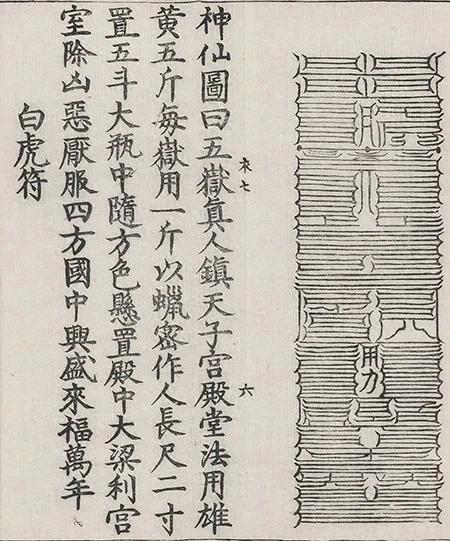 用力
神仙圖曰五嶽真人鎮天子宮殿堂法用雄
黃五斤每嶽用一斤以蠟蜜作人長尺二寸
置五斗大瓶中隨方色懸置殿中大梁利宮
室除凶惡厭服四方國中興盛來福萬年
白虎符
來七
六